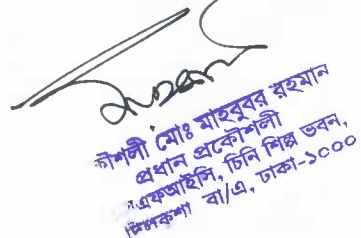 কৌশলী মোঃ মাহবুবর রহমান
প্রধান প্রকৌশলী
এসএফআইসি, চিনি শিল্প ভবন,
দিলকুশা বা/এ, ঢাকা-১০০০